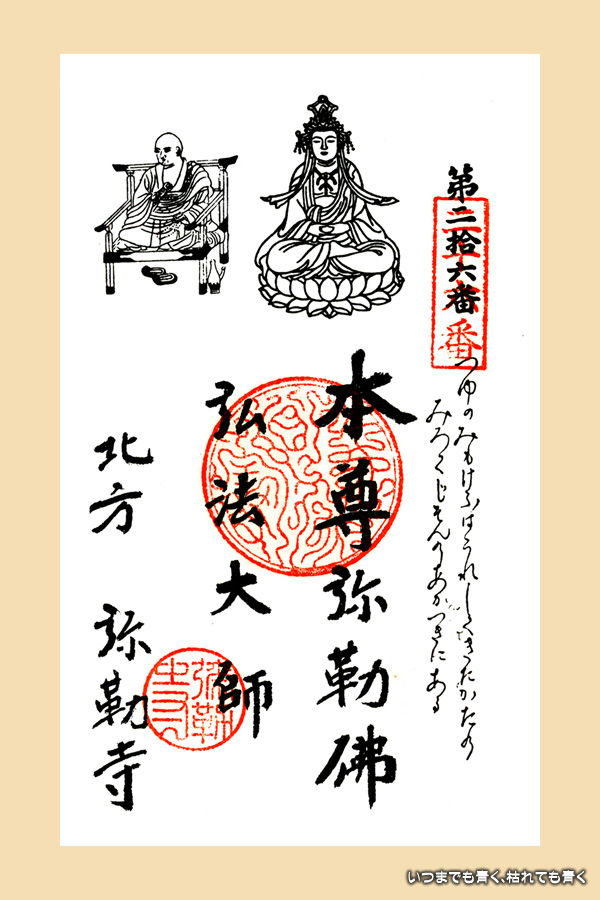 第二拾六番
番
つゆのみもけふはうれしききたかたの
みろくじそんのあかつきにある
本尊弥勒佛
弘法大師
北方 弥勒寺
弥勒
寺
いつまでも青く、枯れても青く